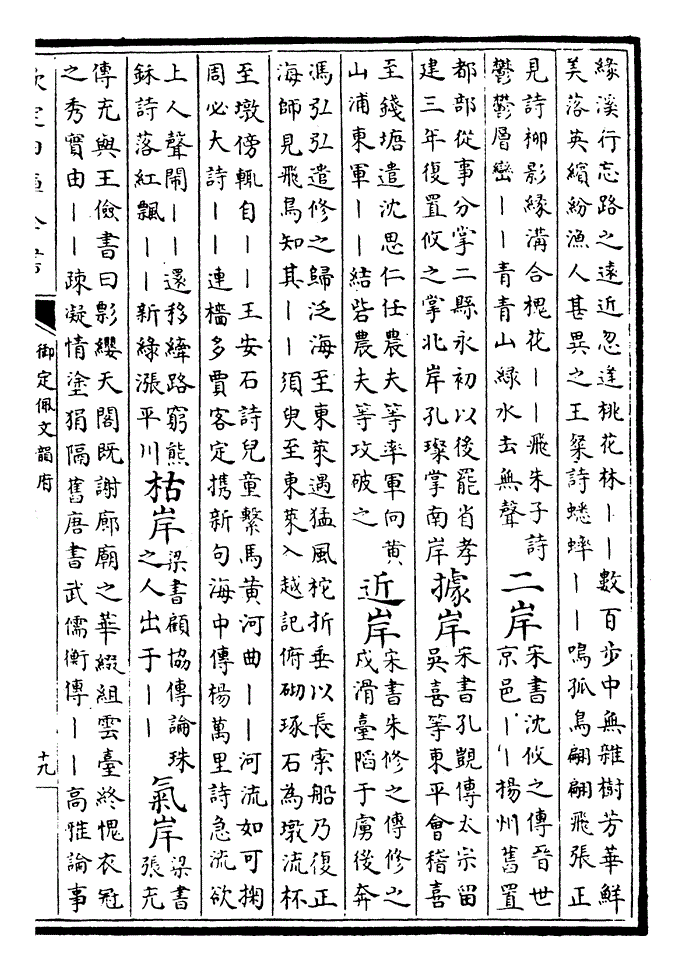 緣溪行忘路之遠近忽逢桃花林｜｜數百步中無雜樹芳華鮮
美落英繽紛漁人甚異之王粲詩蟋蟀｜｜鳴孤鳥翩翩飛張正
見詩柳影緣溝合槐花｜｜飛朱子詩
鬱鬱層巒｜｜青青山綠水去無聲
二岸
宋書沈攸之傳晉世
京邑｜｜揚州舊置
都部從事分掌二縣永初以後罷省孝
建三年復置攸之掌北岸孔璨掌南岸
據岸
宋書孔覬傳太宗留
吳喜等東平會稽喜
至錢塘遣沈思仁任農夫等率軍向黃
山浦東軍｜｜結砦農夫等攻破之
近岸
宋書朱修之傳修之
戍滑臺䧟于虜後奔
馮弘弘遣修之歸泛海至東萊遇猛風柁折垂以長索船乃復正
海師見飛鳥知其｜｜須臾至東萊入越記俯砌琢石為墩流杯
至墩傍輒自｜｜王安石詩兒童繫馬黃河曲｜｜河流如可掬
周必大詩｜｜連檣多賈客定携新句海中傳楊萬里詩急流欲
上人聲鬧｜｜還移縴路窮熊
鉌詩落紅飄｜｜新綠漲平川
枯岸
梁書顧協傳論珠
之人出于｜｜
氣岸
梁書
張充
傳充與王儉書曰影纓天閣既謝廊廟之華綴組雲臺終愧衣冠
之秀實由｜｜疎凝情塗狷隔舊唐書武儒衡傳｜｜高雅論事
欽定四庫全書
御定佩文韻府
十九